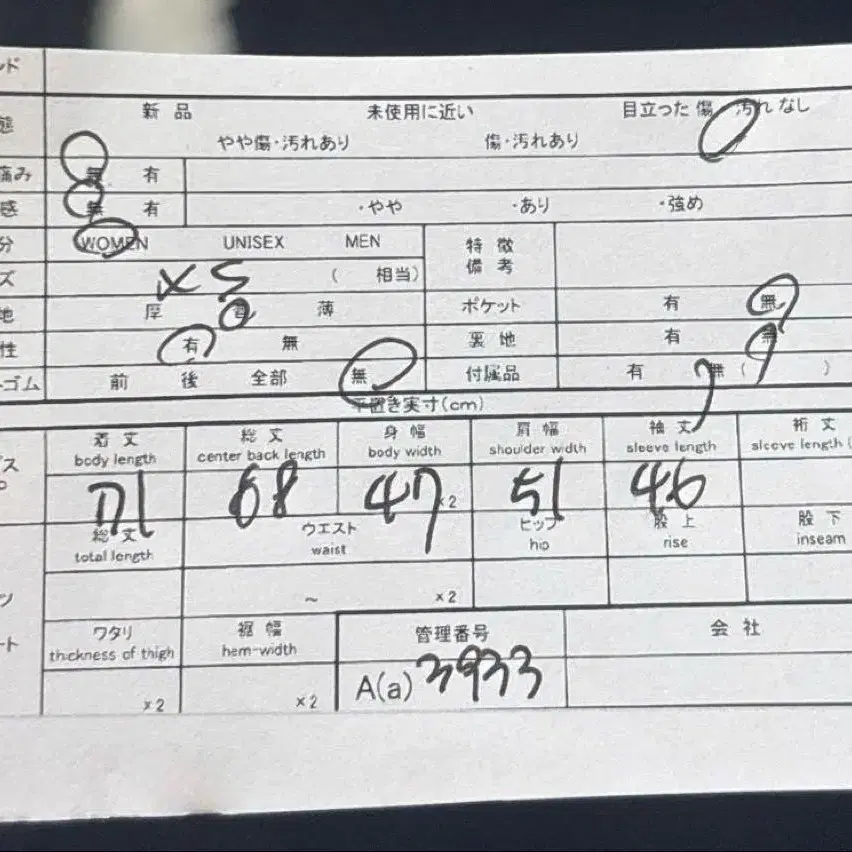 ンド
態 新品 未使用に近い 目立った傷 汚れなし
やや傷・汚れあり 傷・汚れあり
痛み 無 有
感 無 有 ・やや ・あり ・強め
分 WOMEN UNISEX MEN 特徴
備考
ズ XS ( 相当)
地 厚 普 薄 ポケット 有 無
性 有 無 裏地 有 無
ゴム 前 後 全部 無 付属品 有 無 ( )
平置き実寸(cm)
着丈 総丈 身幅 肩幅 袖丈 裄丈
body length center back length body width shoulder width sleeve length sleeve length (
71 68 47 ×2 51 46
総丈 ウエスト ヒップ 股上 股下
total length waist hip rise inseam
~ ×2
ワタリ 裾幅 管理番号 会社
thickness of thigh hem-width
×2 ×2 A(a) 3933